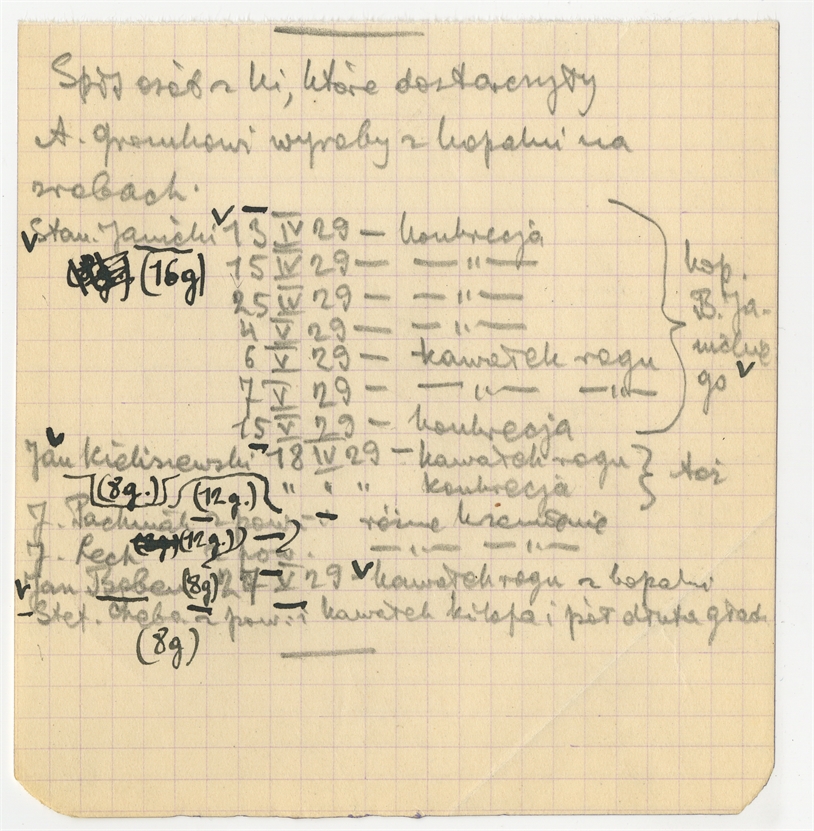 Spis osób z Ki, które dostarczyły
A. Gronkowi wyroby z kopalni na
zrobach.
Stan. Janicki 13 IV 29 — konkrecja
(16g) 15 IV 29 — — " —
25 IV 29 — — " —
4 V 29 — — " —
6 V 29 — kawałek rogu
7 V 29 — — " — — " —
15 V 29 — konkrecja
kop.
B. Ja-
nickie
go
Jan Kieliszewski 18 IV 29 — kawałek rogu
(8g.) (12g.) " " " konkrecja
toż
J. Pachniak z pow. — różne krzemienie
J. Rech (12g.) z pow. — " — — " —
Jan Beben (8g) 27 V 29 kawałek rogu z kopalni
Stef. z pow. kawałek kilofa i pół dłuta gładz.
(8g)